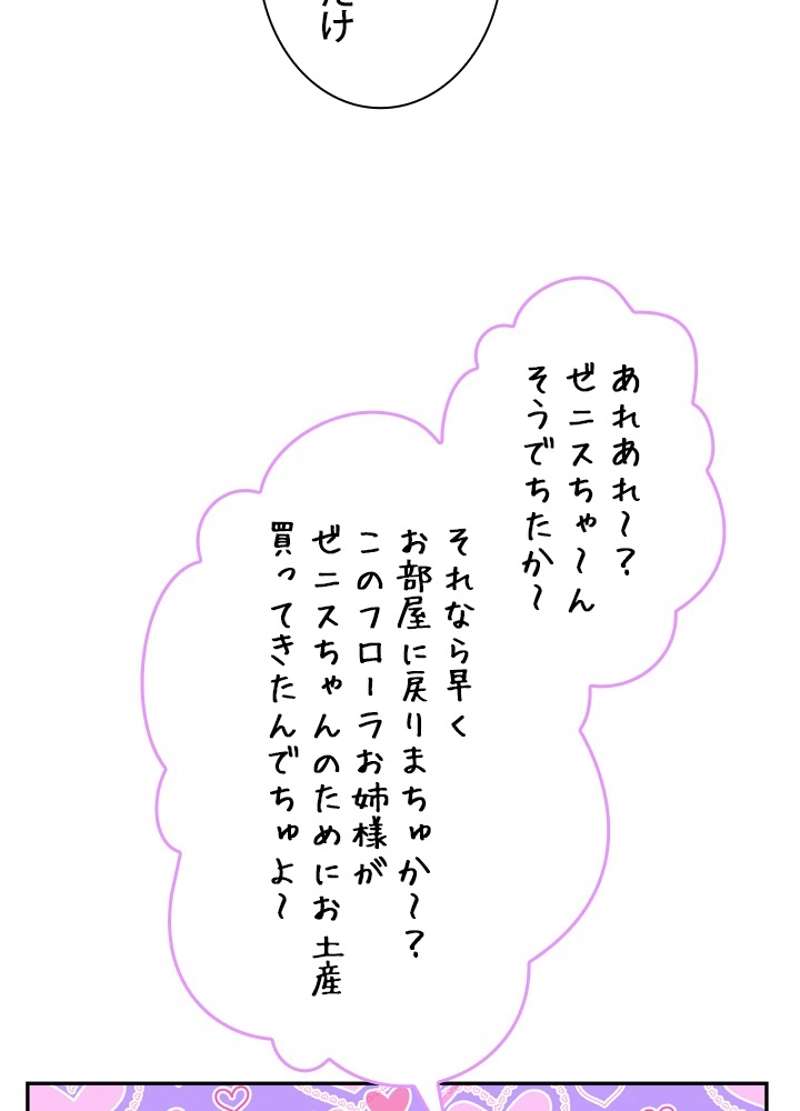 だけ
あれあれ～？
ゼニスちゃ～ん
そうでちたか～
それなら早く
お部屋に戻りまちゅか～？
このフローラお姉様が
ゼニスちゃんのためにお土産
買ってきたんでちゅよ～